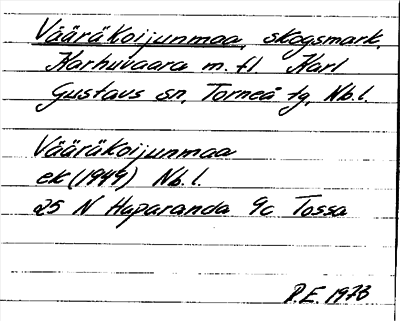 Vääräkoijunmaa, skogsmark,
Karhuvaara m. fl. Karl
Gustavs sn, Torneå tg, Nb.l.
Vääräkoijunmaa
ek (1949) Nb.l.
25 N Haparanda 9c Tossa
P.E. 1973